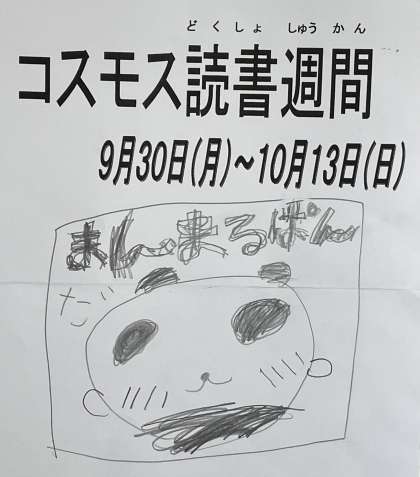 どくしょ しゅうかん
コスモス読書週間
9月30日(月)~10月13日(日)
まんまるぱん
だ